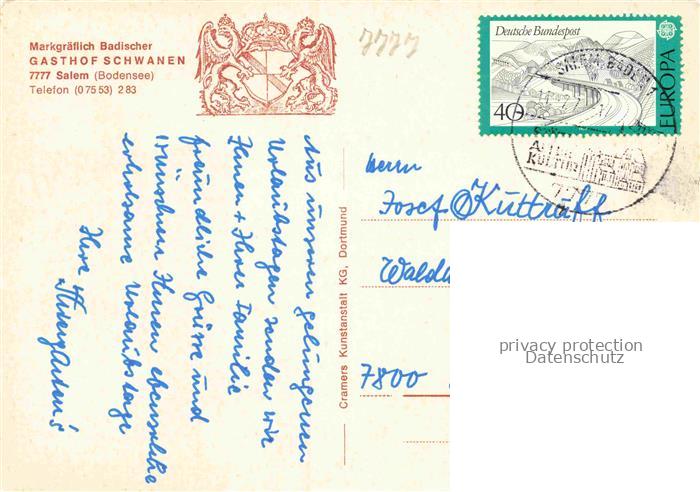 Markgräflich Badischer
GASTHOF SCHWANEN
7777 Salem (Bodensee)
Telefon (0 75 53) 2 83
7777
Deutsche Bundespost
40
EUROPA
Aus unseren gelungenen
Urlaubstagen senden wir
Ihnen + Ihrer Familie
freundliche Grüsse und
wünschen Ihnen ebensolche
erholsame Urlaubstage
Ihre
Cramers Kunstanstalt KG, Dortmund
Herrn
Josef Kutträff
7800
privacy protection
Datenschutz